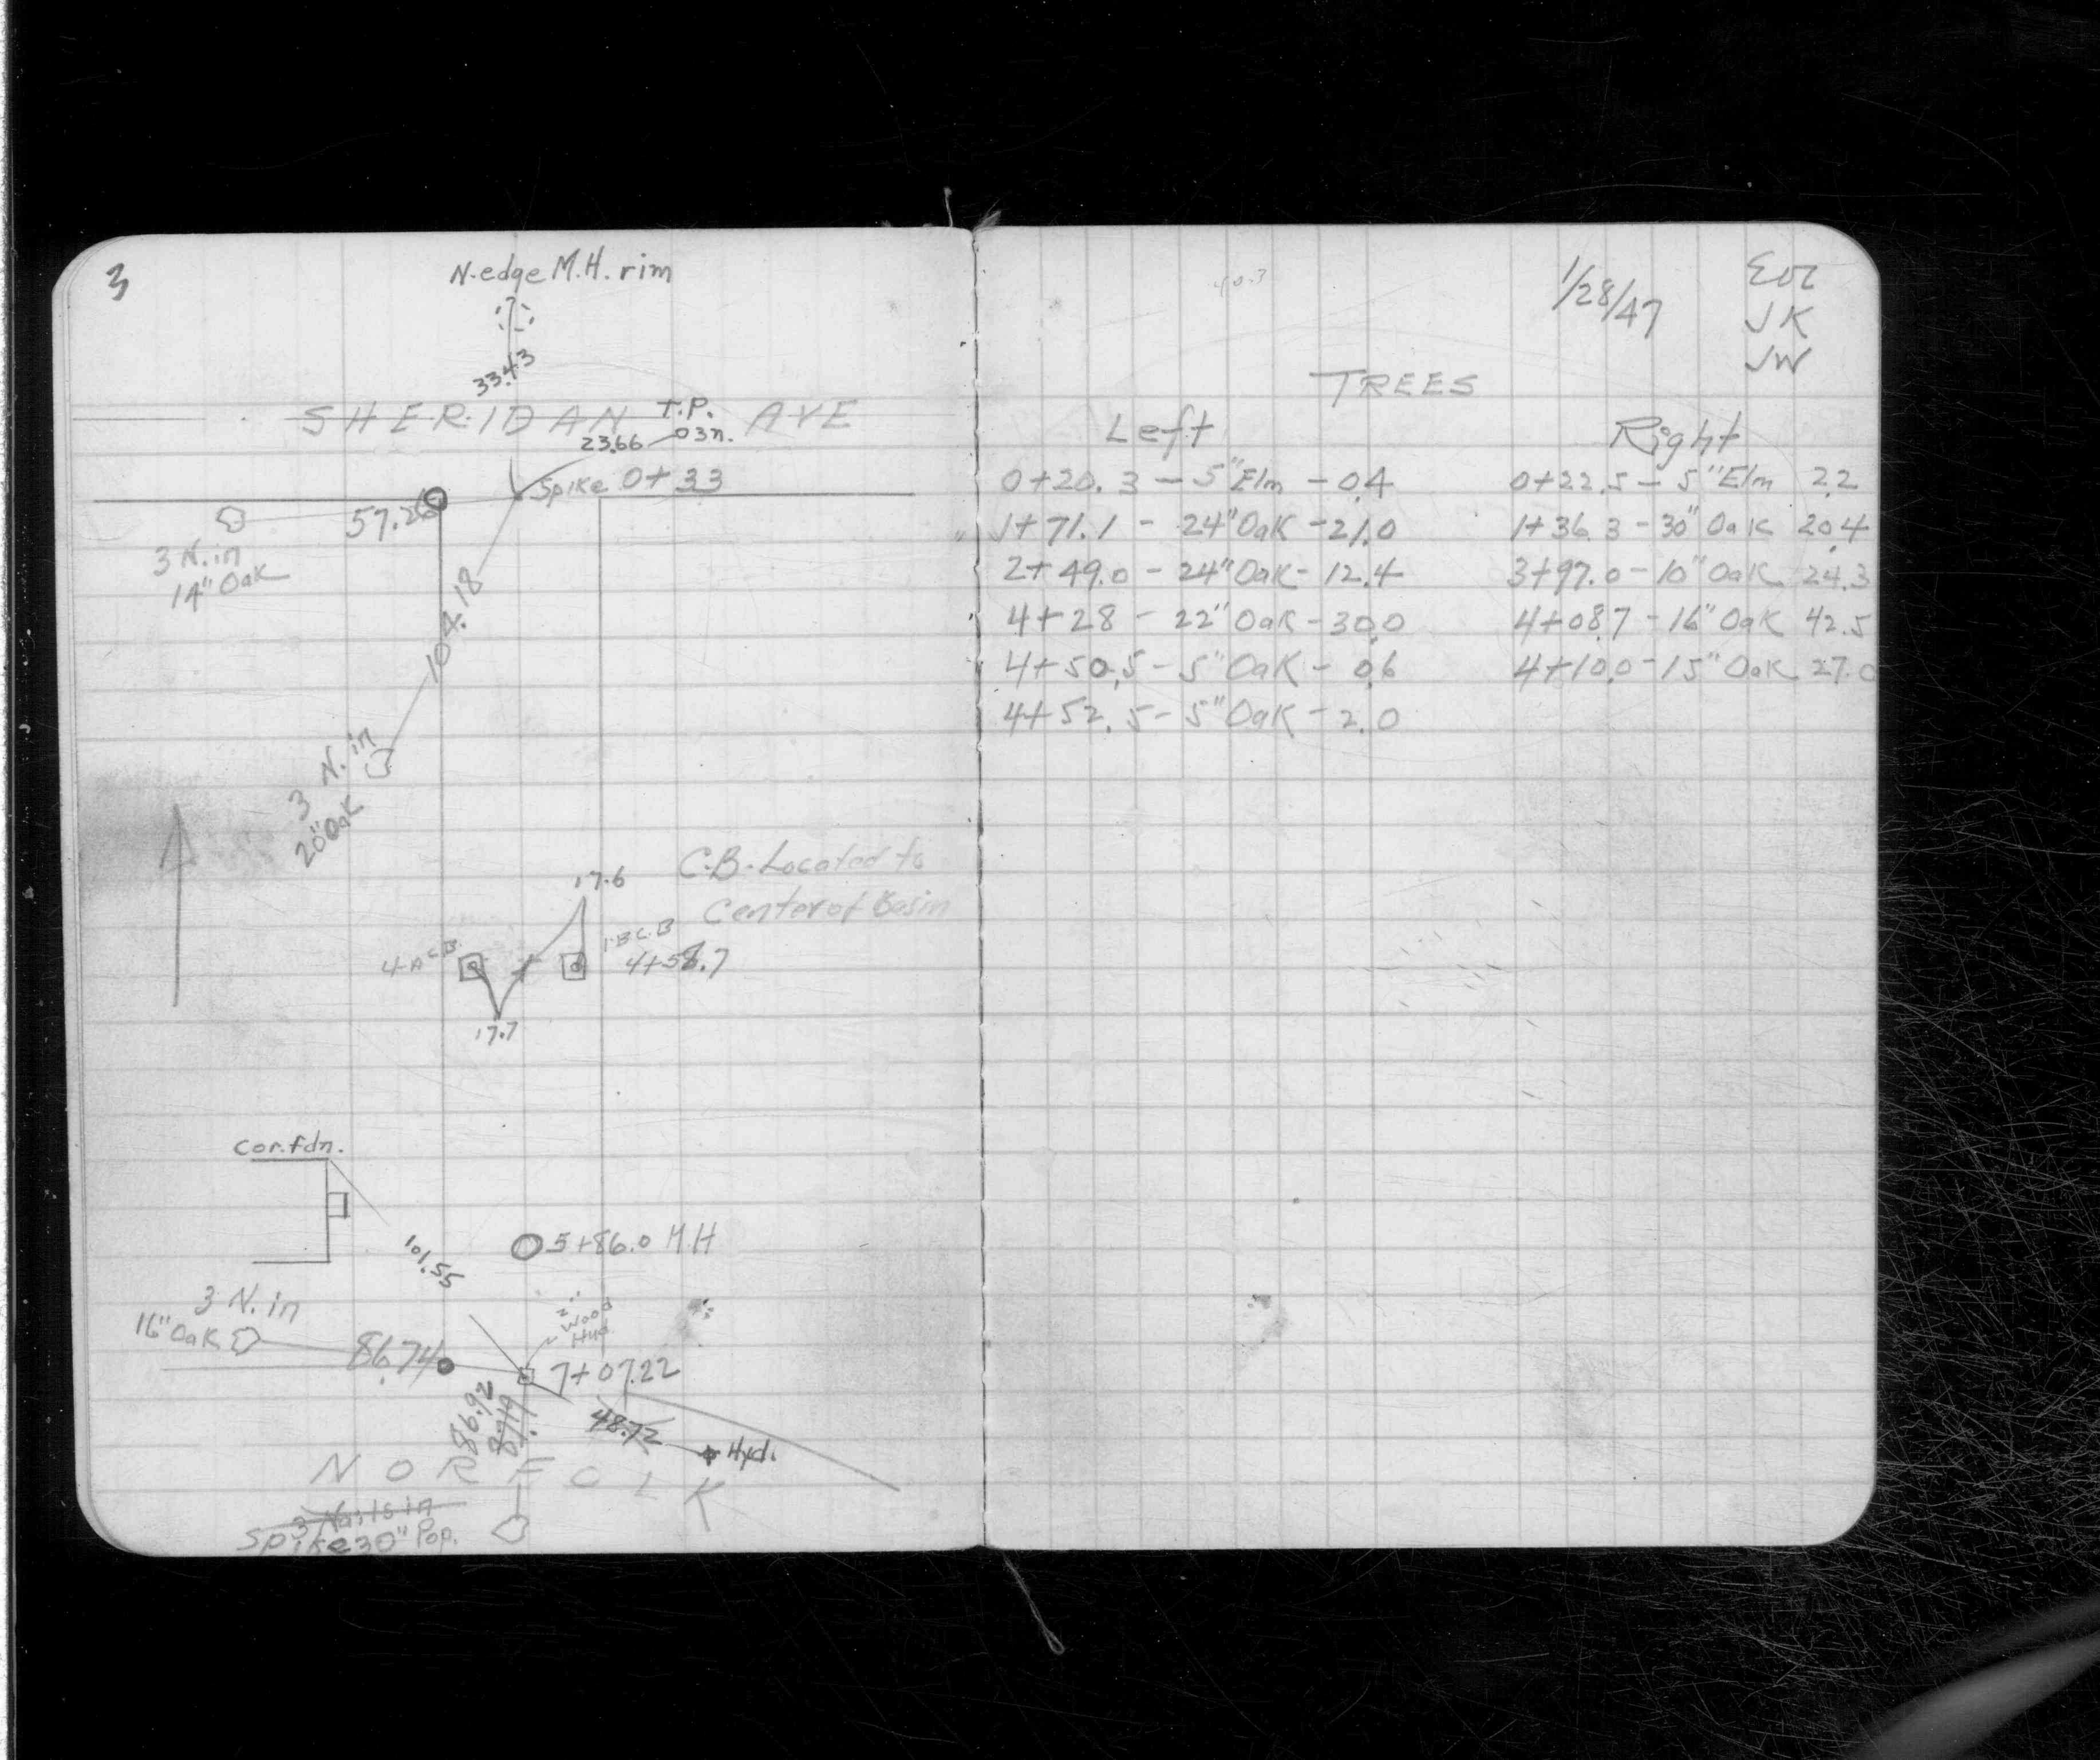 3
N. edge M.H. rim
33.43
SHERIDAN AVE
T.P.
23.66 03n.
Spike 0+33
57.26
3 N. in
14" Oak
104.18
3 N. in
20" Oak
C.B. Located to
Center of Basin
17.6
C.B.
C.B
4+58.7
17.7
Cor. fdn.
101.55
5+86.0 M.H
3 N. in
16" Oak
86.74
Wood
7+07.22
86.92
48.72
Hyd.
NORFOLK
3 Nails in
Spike 30" Pop.
1/28/47
JK
JW
TREES
Left Right
0+20.3 - 5" Elm - 0.4 0+22.5 - 5" Elm 2.2
1+71.1 - 24" Oak - 21.0 1+36.3 - 30" Oak 20.4
2+49.0 - 24" Oak - 12.4 3+97.0 - 10" Oak 24.3
4+28 - 22" Oak - 30.0 4+08.7 - 16" Oak 42.5
4+50.5 - 5" Oak - 0.6 4+10.0 - 15" Oak 27.0
4+52.5 - 5" Oak - 2.0